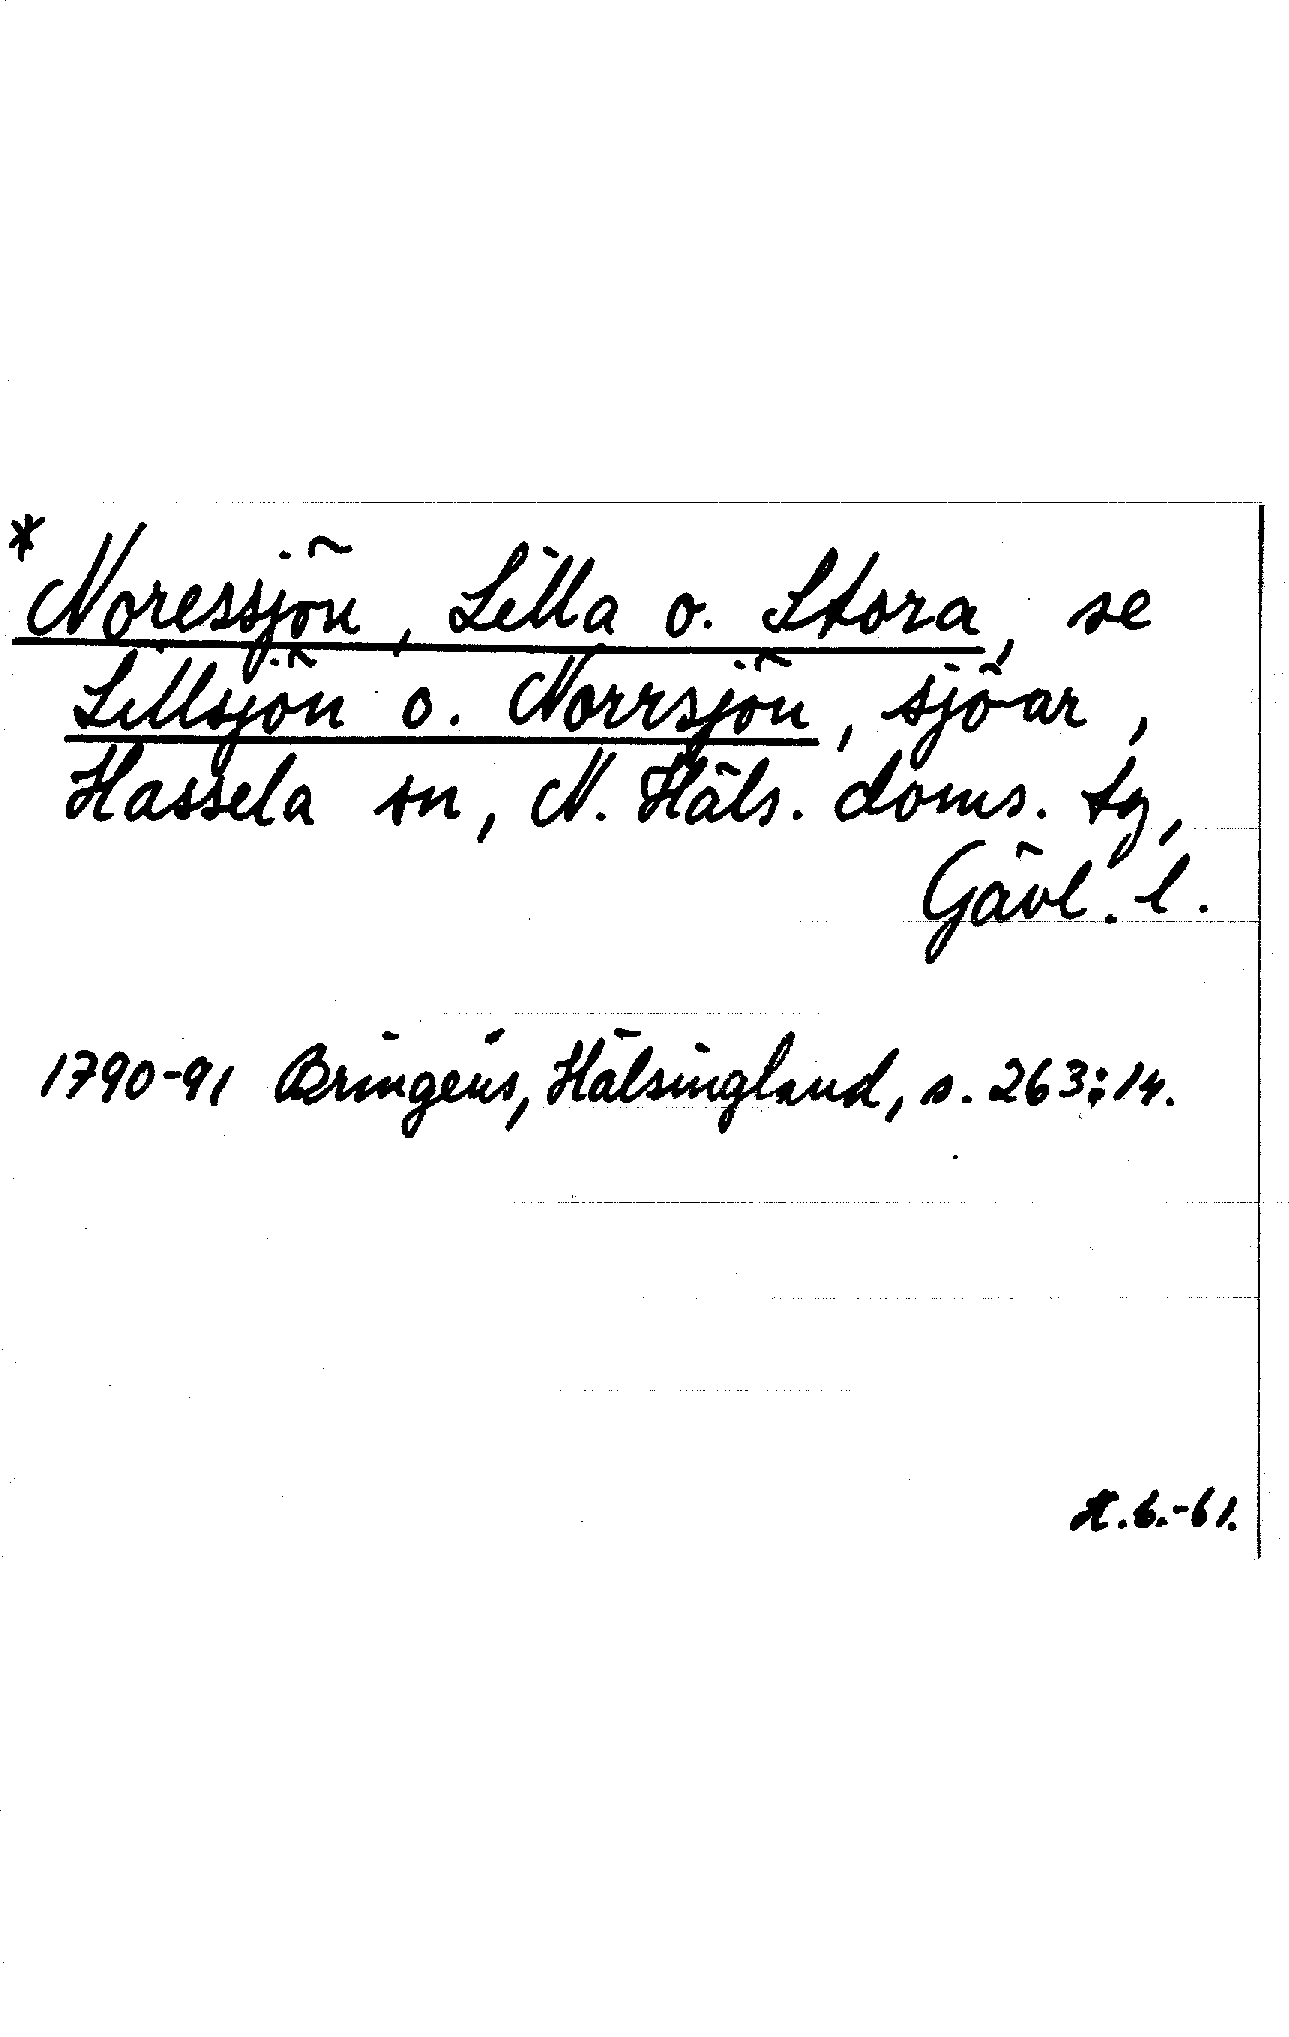 * Noressjön, Lilla o. Stora, se
Lillsjön o. Norrsjön, sjöar,
Hassela sn, N. Häls. doms. tg,
Gävl. l.
1790-91 Bringéus, Hälsingland, s. 263:14.
H.6.-61.